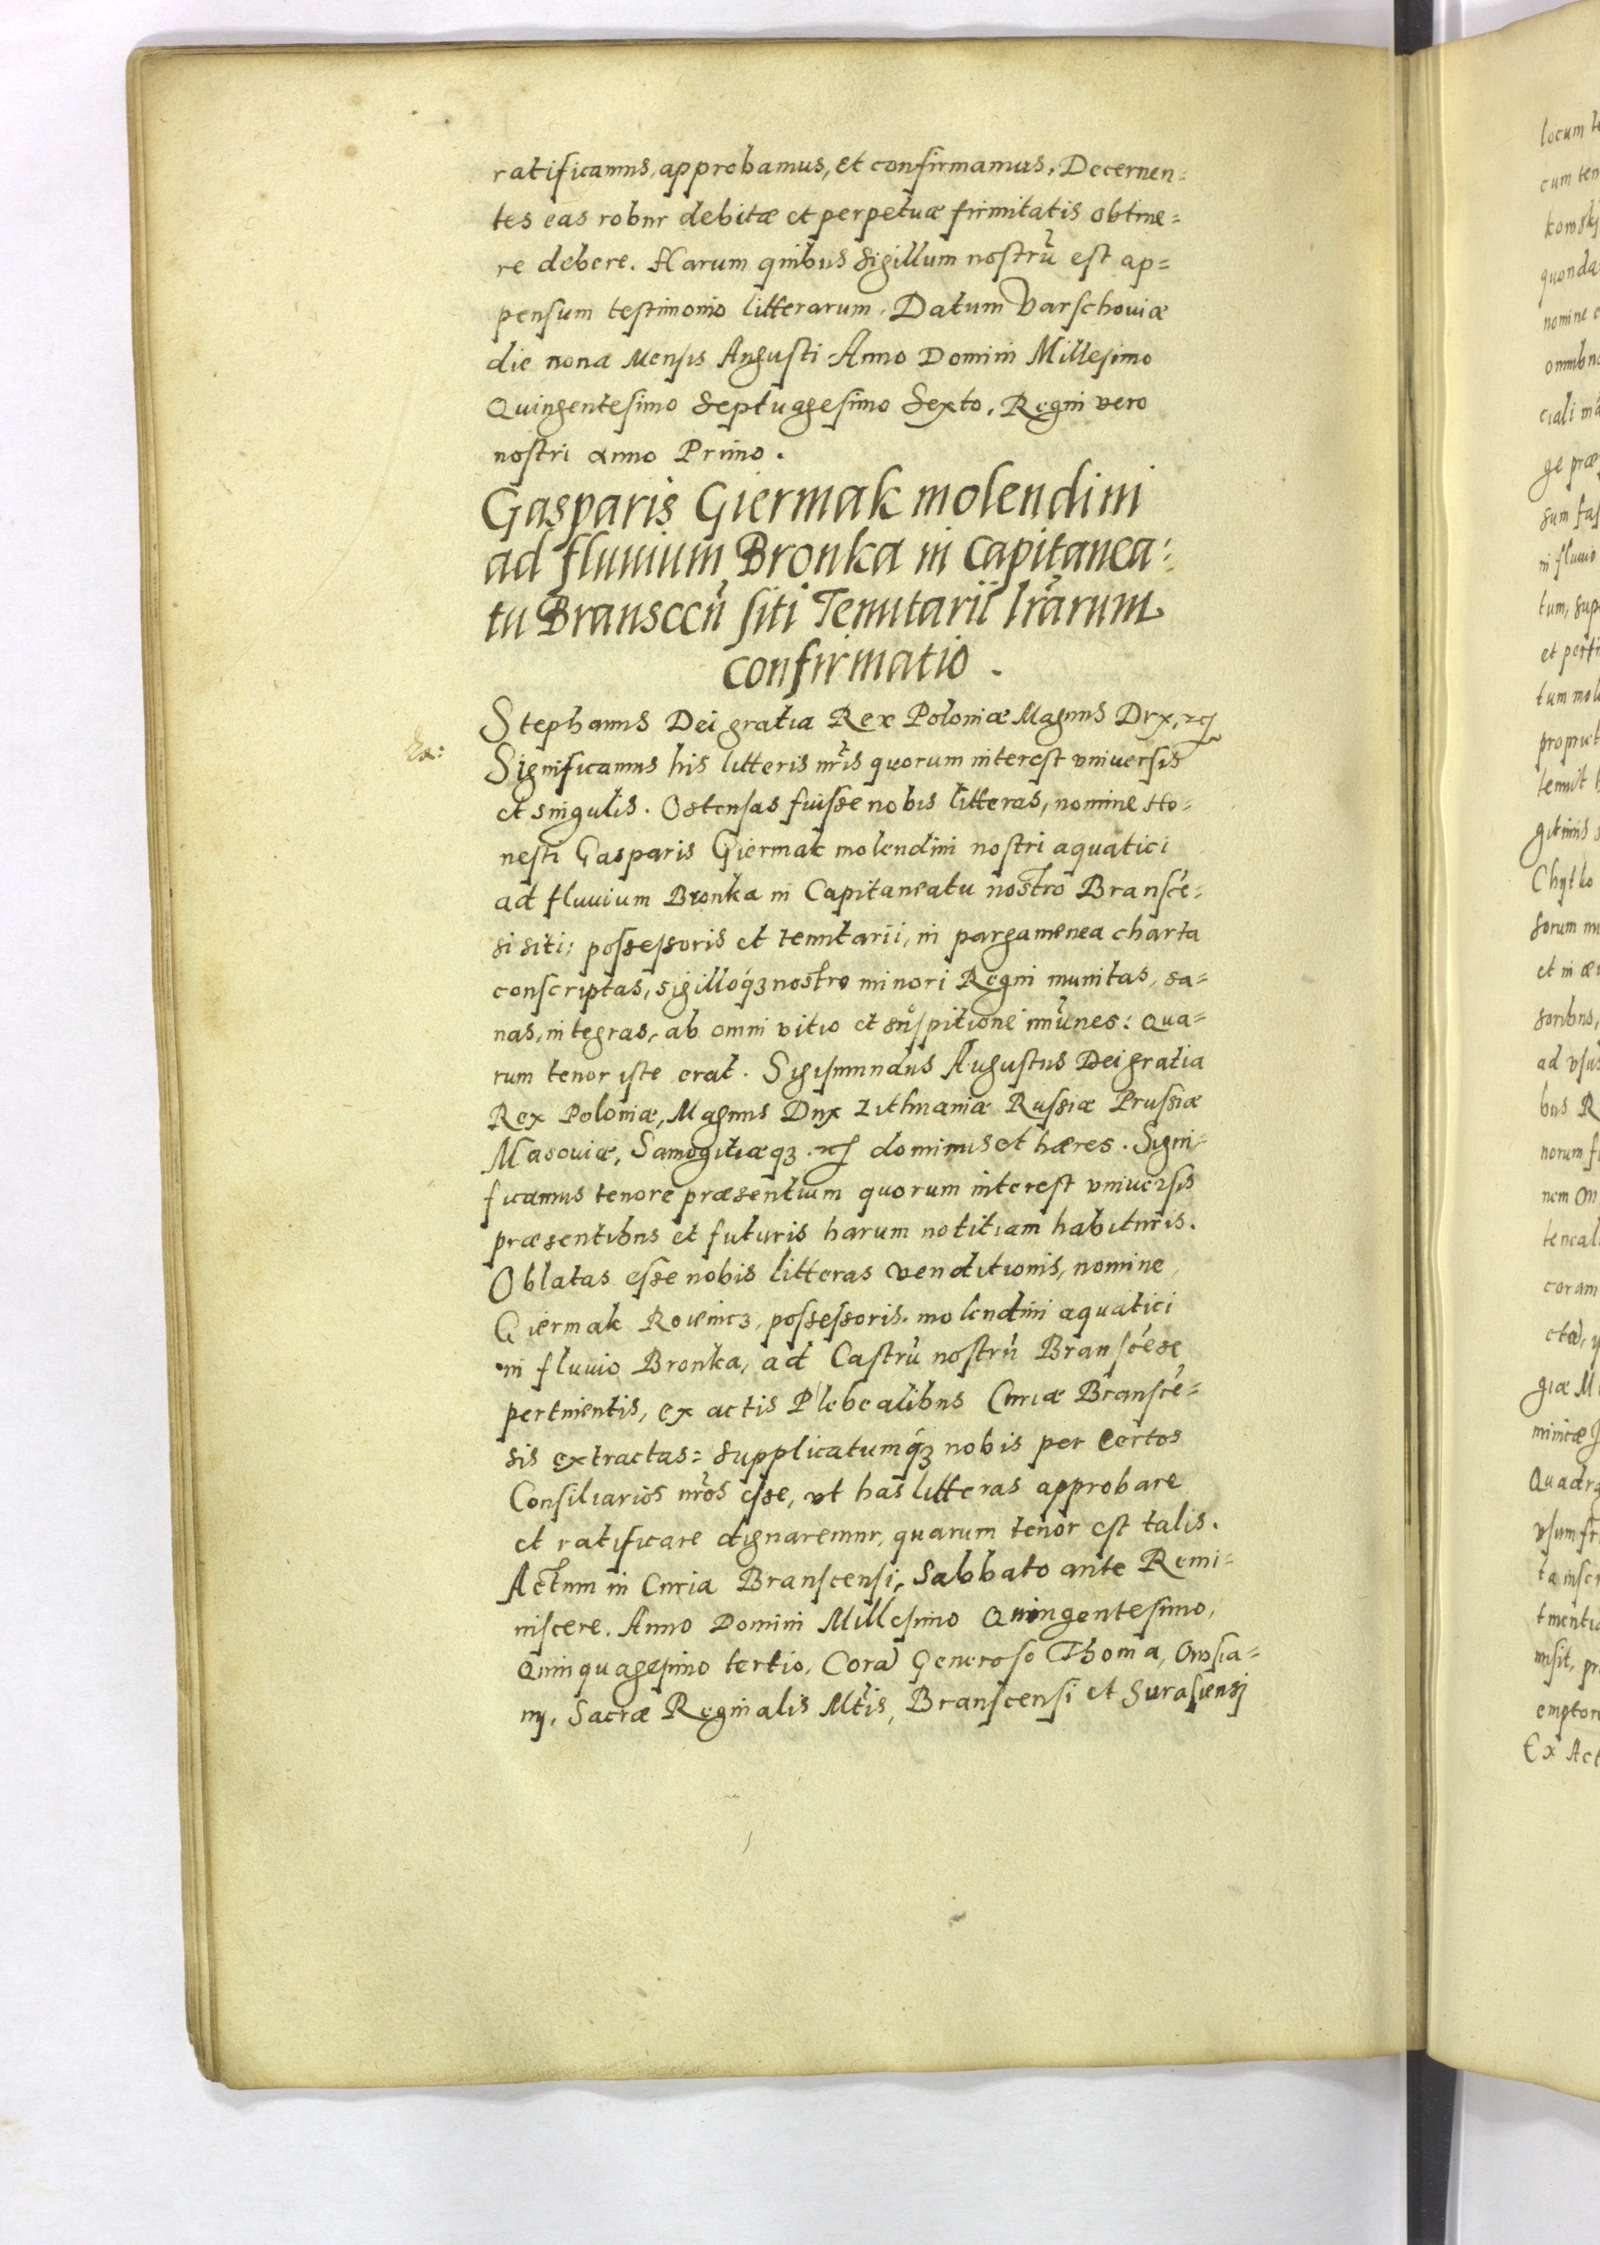 ratificamus, approbamus, et confirmamus, Decernen=
tes eas robur debitæ et perpetuæ firmitatis obtine=
re debere. Harum quibus sigillum nostrũ est ap=
pensum testimonio litterarum. Datum Varschoviæ
die nona Mensis Augusti Anno Domini Millesimo
Quingentesimo Septuagesimo Sexto, Regni vero
nostri anno Primo.
Gasparis Giermak molendini
ad fluvium Bronka in capitanea:
tu Bransceñ siti Tenutarii lrãrum
confirmatio.
Stephanus Dei gratia Rex Poloniæ Magnus Dux,
Significamus his litteris nr̃is quorum interest universis
et singulis. Ostensas fuisse nobis litteras, nomine Ho=
nesti Gasparis Giermak molendini nostri aquatici
ad fluvium Bronka in Capitaneatu nostro Branscẽ=
si siti: possessoris et tenutarii, in pargamenea charta
conscriptas, sigilloqꝫ nostro minori Regni munitas, sa=
nas, integras, ab omni vitio et suspitione imũnes: qua=
rum tenor iste erat. Sigismundus Augustus Dei gratia
Rex Poloniæ, Magnus Dux Lithuaniæ Russiæ Prussiæ
Masoviæ, Samogitiæqꝫ dominus et hæres. Signi=
ficamus tenore præsentium quorum interest universis
præsentibus et futuris harum notitiam habituris.
Oblatas esse nobis litteras venditionis, nomine
Giermak possessoris molendini aquatici
in fluvio Bronka, ad Castrũ nostrũ Branscẽse
pertinentis, ex actis Plebealibus Curiæ Branscẽ=
sis extractas: supplicatumqꝫ nobis per certos
Consiliarios nr̃os esse, ut has litteras approbare
et ratificare dignaremur, quarum tenor est talis.
Actum in Curia Branscensi, Sabbato ante Remi=
niscere. Anno Domini Millesimo Quingentesimo,
Quinquagesimo tertio, Corã Generoso Thoma, Owsia=
nj, Sacræ Reginalis Mt̃is, Branscensi et Surasiensj